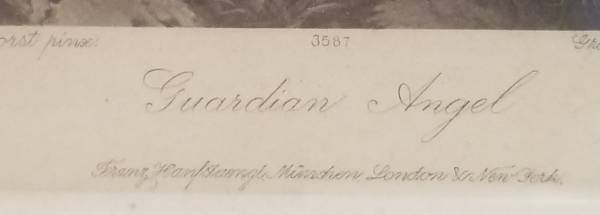 pinx. 3587
Guardian Angel
Franz Hanfstaengl, München, London & New-York.